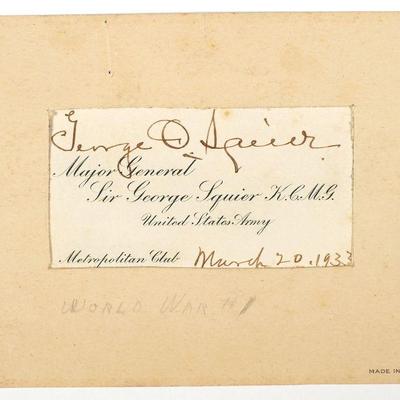 George O. Squier.
Major General
Sir George Squier K.C.M.G.
United States Army
Metropolitan Club March 20. 1933
WORLD WAR #1
MADE IN